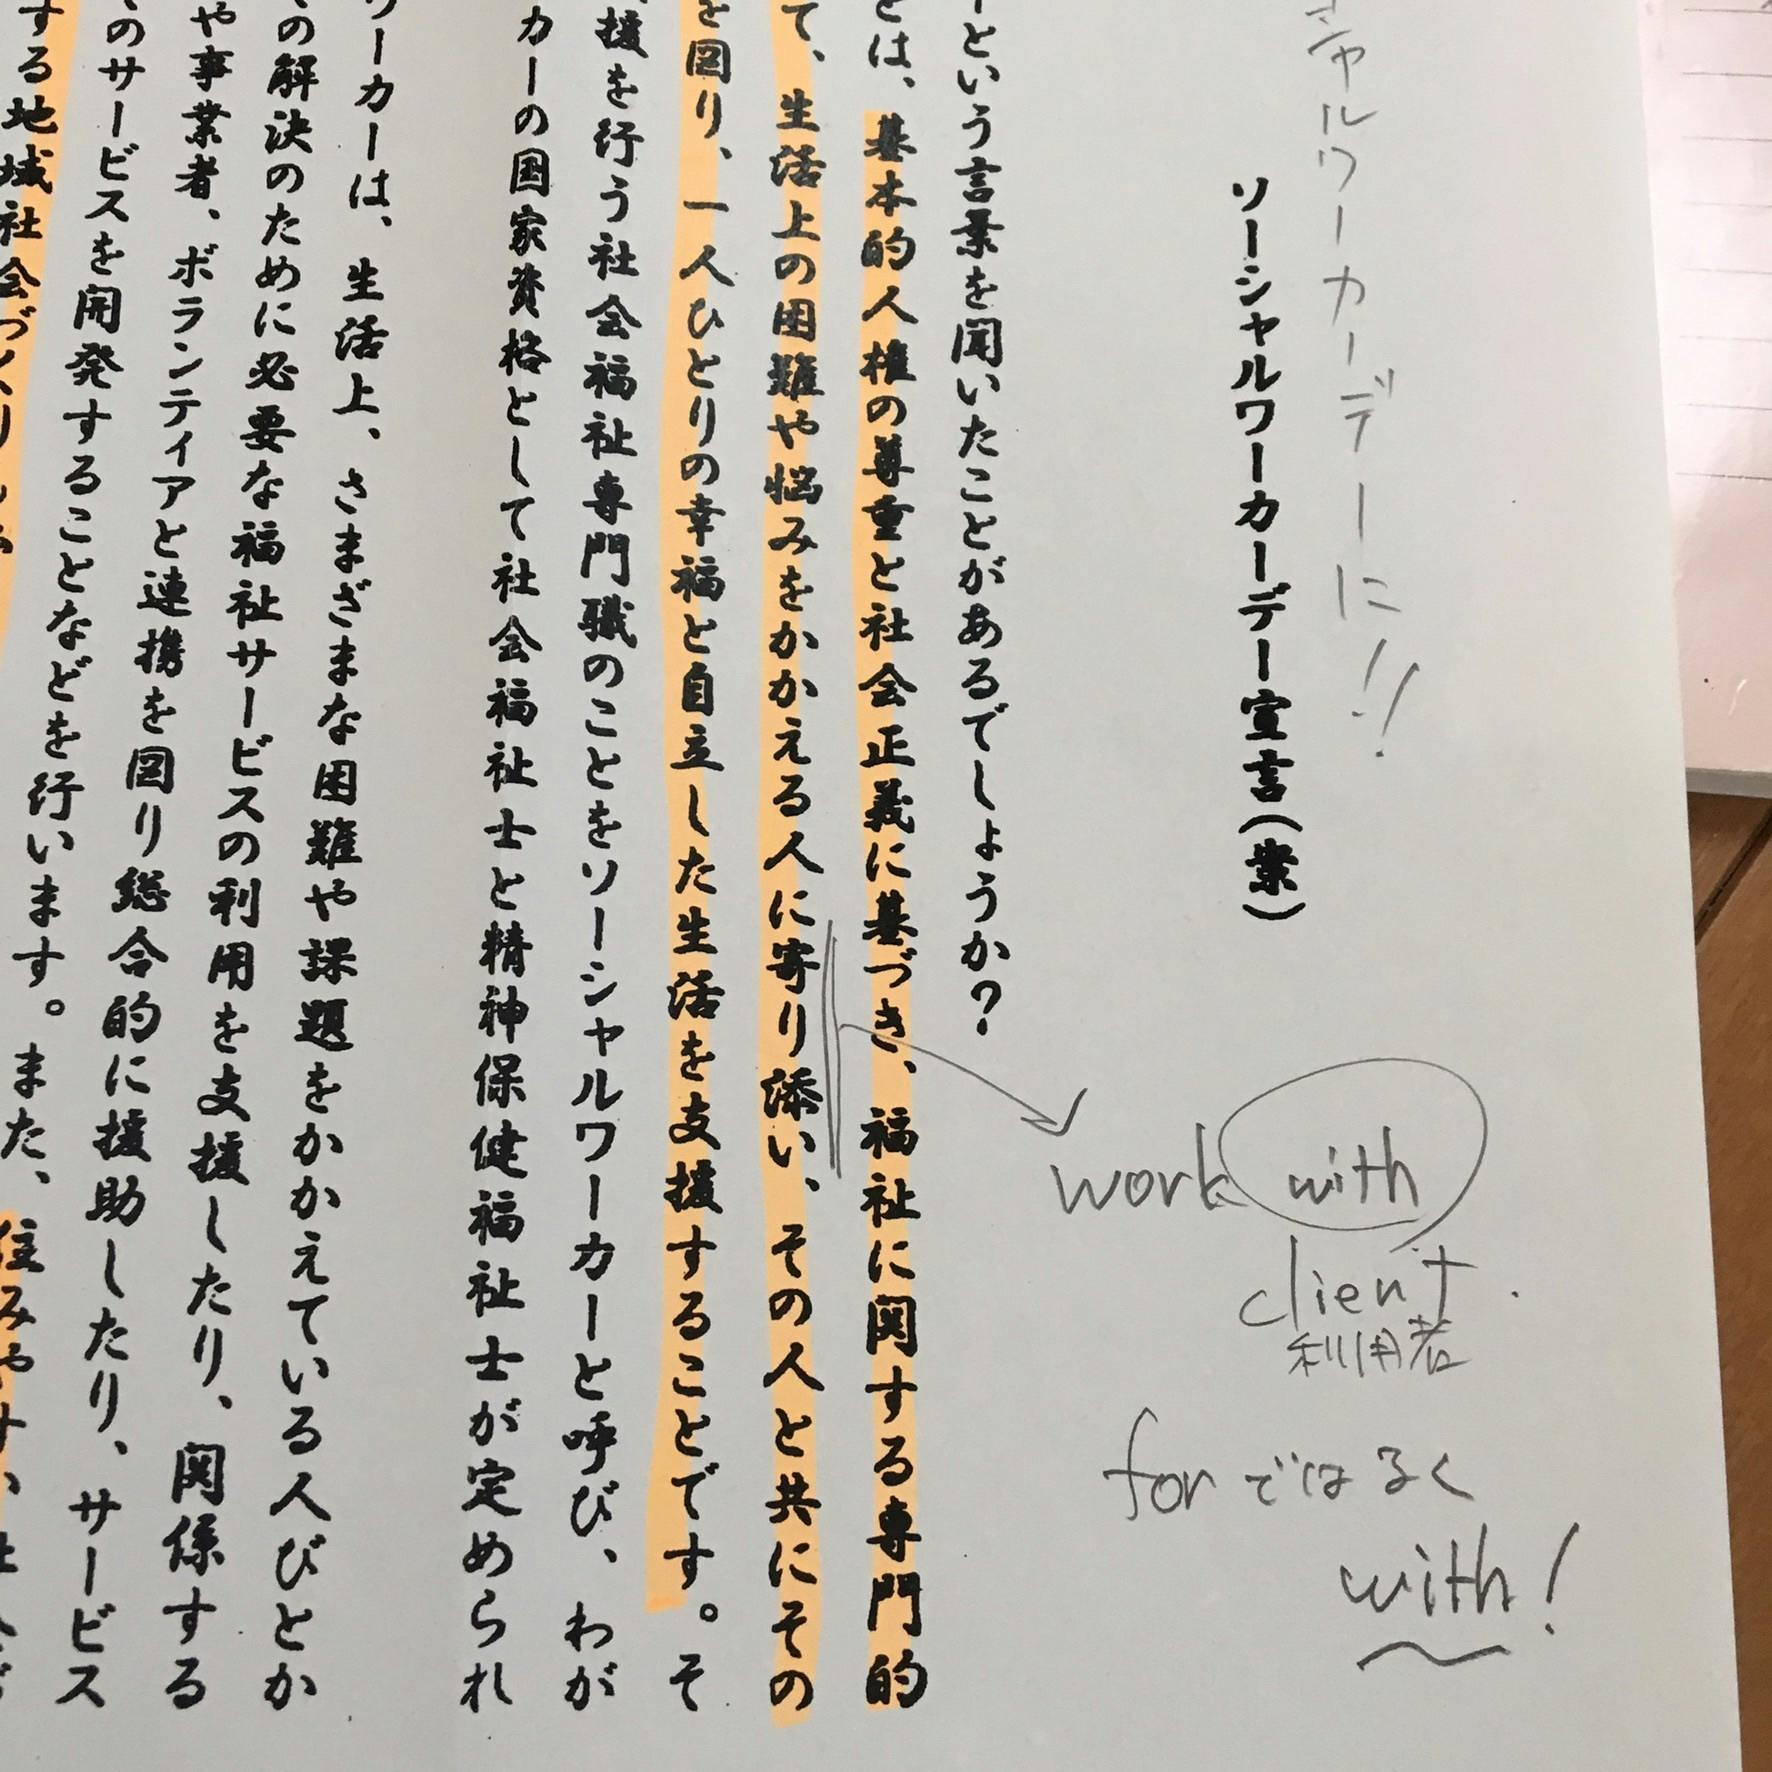 シャルワーカーデーに!!
ソーシャルワーカーデー宣言(案)
ーという言葉を聞いたことがあるでしょうか?
とは、基本的人権の尊重と社会正義に基づき、福祉に関する専門的
て、生活上の困難や悩みをかかえる人に寄り添い、その人と共にその
を図り、一人ひとりの幸福と自立した生活を支援することです。そ
援を行う社会福祉専門職のことをソーシャルワーカーと呼び、わが
カーの国家資格として社会福祉士と精神保健福祉士が定められ
ワーカーは、生活上、さまざまな困難や課題をかかえている人びとか
の解決のために必要な福祉サービスの利用を支援したり、関係する
や事業者、ボランティアと連携を図り総合的に援助したり、サービス
のサービスを開発することなどを行います。また、住みやす
する地域社会づくり
work with
client
利用者
forではなく
with!